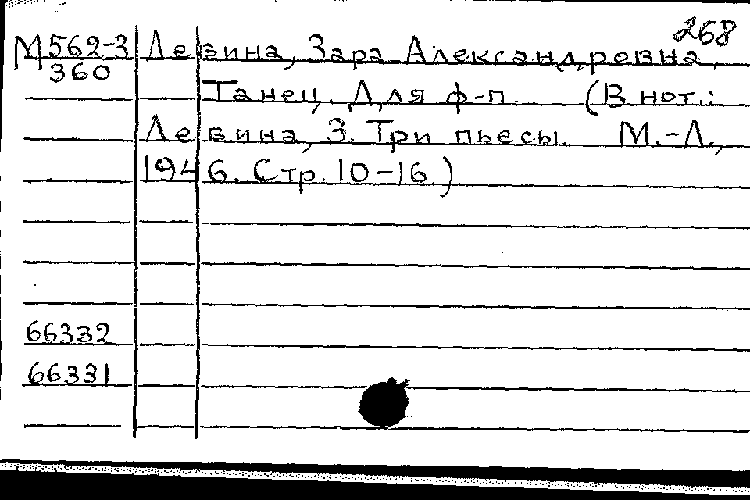 268
М562-3 Левина, Зара Александровна.
360
Танец. Для ф-п. (В нот.:
Левина, З. Три пьесы. М.-Л.,
1946. Стр. 10-16)
66332
66331